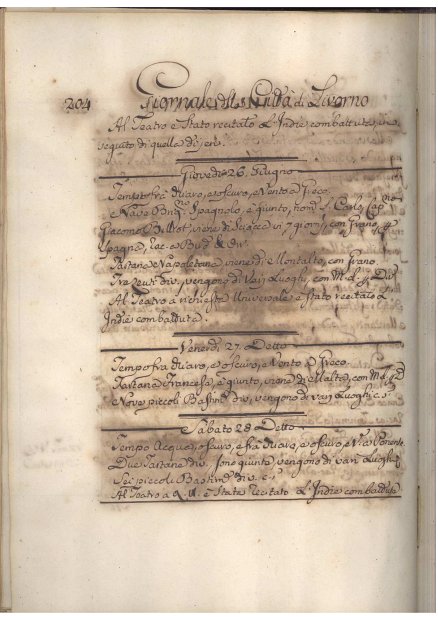 204
Giornale della Città di Livorno
Al Teatro è Stato recitato L'Indie combattute, in
seguito di quella di jeri.
Giovedì 26. Giugno
Tempo frà chiaro, e oscuro, e Vento a Greco.
e Nave Spagnolo, è giunto, nom. S. Carlo, Cap.no
Giacomo viene di in 7 giorni, con Grano, 4
Spagna,
Tartane Napoletane viene di Montalto, con Grano.
div. vengono di Varj Luoghi, con
Al Teatro a richiesta Universale è stato recitato L
Indie combattute.
Venerdì 27. Detto
Tempo fra chiaro, e oscuro, e Vento a Greco.
Tartana Francese, è giunto, viene di Malta, con
e Nove piccoli div. vengono di varj Luoghi
Sabato 28 Detto
Tempo Acqua, oscuro, e frà chiaro, e oscuro, e Ponente
Due Tartane div. sono giunte vengono di varj Luoghi
Sei piccoli div.
Al Teatro a è Stata recitato L Indie combattute